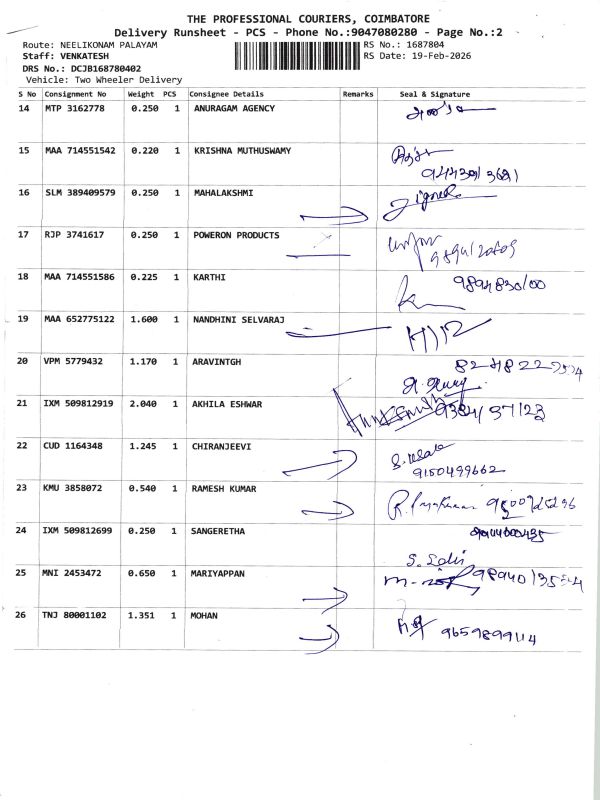 THE PROFESSIONAL COURIERS, COIMBATORE
Delivery Runsheet - PCS - Phone No.:9047080280 - Page No.:2
Route: NEELIKONAM PALAYAM RS No.: 1687804
Staff: VENKATESH RS Date: 19-Feb-2026
DRS No.: DCJB168780402
Vehicle: Two Wheeler Delivery
S No Consignment No Weight PCS Consignee Details Remarks Seal & Signature
14 MTP 3162778 0.250 1 ANURAGAM AGENCY
15 MAA 714551542 0.220 1 KRISHNA MUTHUSWAMY
16 SLM 389409579 0.250 1 MAHALAKSHMI
17 RJP 3741617 0.250 1 POWERON PRODUCTS
18 MAA 714551586 0.225 1 KARTHI
19 MAA 652775122 1.600 1 NANDHINI SELVARAJ
20 VPM 5779432 1.170 1 ARAVINTGH
21 IXM 509812919 2.040 1 AKHILA ESHWAR
22 CUD 1164348 1.245 1 CHIRANJEEVI
9150499662
23 KMU 3858072 0.540 1 RAMESH KUMAR
24 IXM 509812699 0.250 1 SANGERETHA
25 MNI 2453472 0.650 1 MARIYAPPAN
26 TNJ 80001102 1.351 1 MOHAN
9659899114